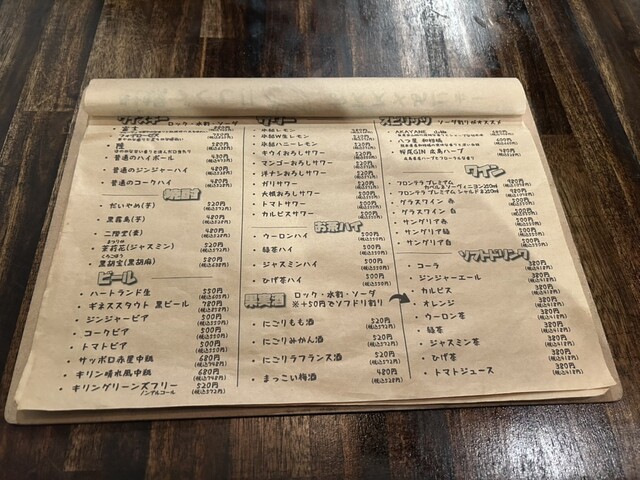 ウイスキー
ロック・水割・ソーダ
・富士
・陸 520円
・普通のハイボール 430円
(税込473円)
・普通のジンジャーハイ 480円
(税込528円)
・普通のコークハイ 480円
(税込528円)
焼酎
・だいやめ(芋) 520円
(税込572円)
・黒霧島(芋) 480円
(税込528円)
・二階堂(麦) 480円
(税込528円)
・茉莉花(ジャスミン) 520円
(税込572円)
・黒胡宝(黒胡麻) 580円
(税込638円)
ビール
・ハートランド生 550円
(税込605円)
・ギネススタウト 黒ビール 780円
(税込858円)
・ジンジャービア 500円
(税込550円)
・コークビア 500円
(税込550円)
・トマトビア 500円
(税込550円)
・サッポロ赤星中瓶 680円
(税込748円)
・キリン晴れ風中瓶 680円
(税込748円)
・キリングリーンズフリー 520円
ノンアルコール (税込572円)
サワー
・氷結レモン
・氷結W生レモン
・氷結ハニーレモン
・キウイおろしサワー
・マンゴーおろしサワー
・洋ナシおろしサワー
・ガリサワー
・大根おろしサワー
・トマトサワー
・カルピスサワー
お茶ハイ
・ウーロンハイ 500円
(税込550円)
・緑茶ハイ 500円
(税込550円)
・ジャスミンハイ 500円
(税込550円)
・ひげ茶ハイ 500円
(税込550円)
果実酒
ロック・水割・ソーダ
※+50円でソフドリ割り
・にごりもも酒 520円
(税込572円)
・にごりみかん酒 520円
(税込572円)
・にごりラフランス酒 520円
(税込572円)
・まっこい梅酒 480円
(税込528円)
スピリッツ
ソーダ割りがオススメ
・AKAYANE
ワイン
・フロンテラ プレミアム
カベルネソーヴィニヨン250ml
・フロンテラ プレミアム シャルドネ250ml
・グラスワイン 赤 500円
(税込550円)
・グラスワイン 白 500円
(税込550円)
・サングリア赤 500円
(税込550円)
・サングリア桃 500円
(税込550円)
・サングリア白 500円
(税込550円)
ソフトドリンク
・コーラ 380円
(税込418円)
・ジンジャーエール 380円
(税込418円)
・カルピス 380円
(税込418円)
・オレンジ 380円
(税込418円)
・ウーロン茶 380円
(税込418円)
・緑茶 380円
(税込418円)
・ジャスミン茶 380円
(税込418円)
・ひげ茶 380円
(税込418円)
・トマトジュース 380円
(税込418円)